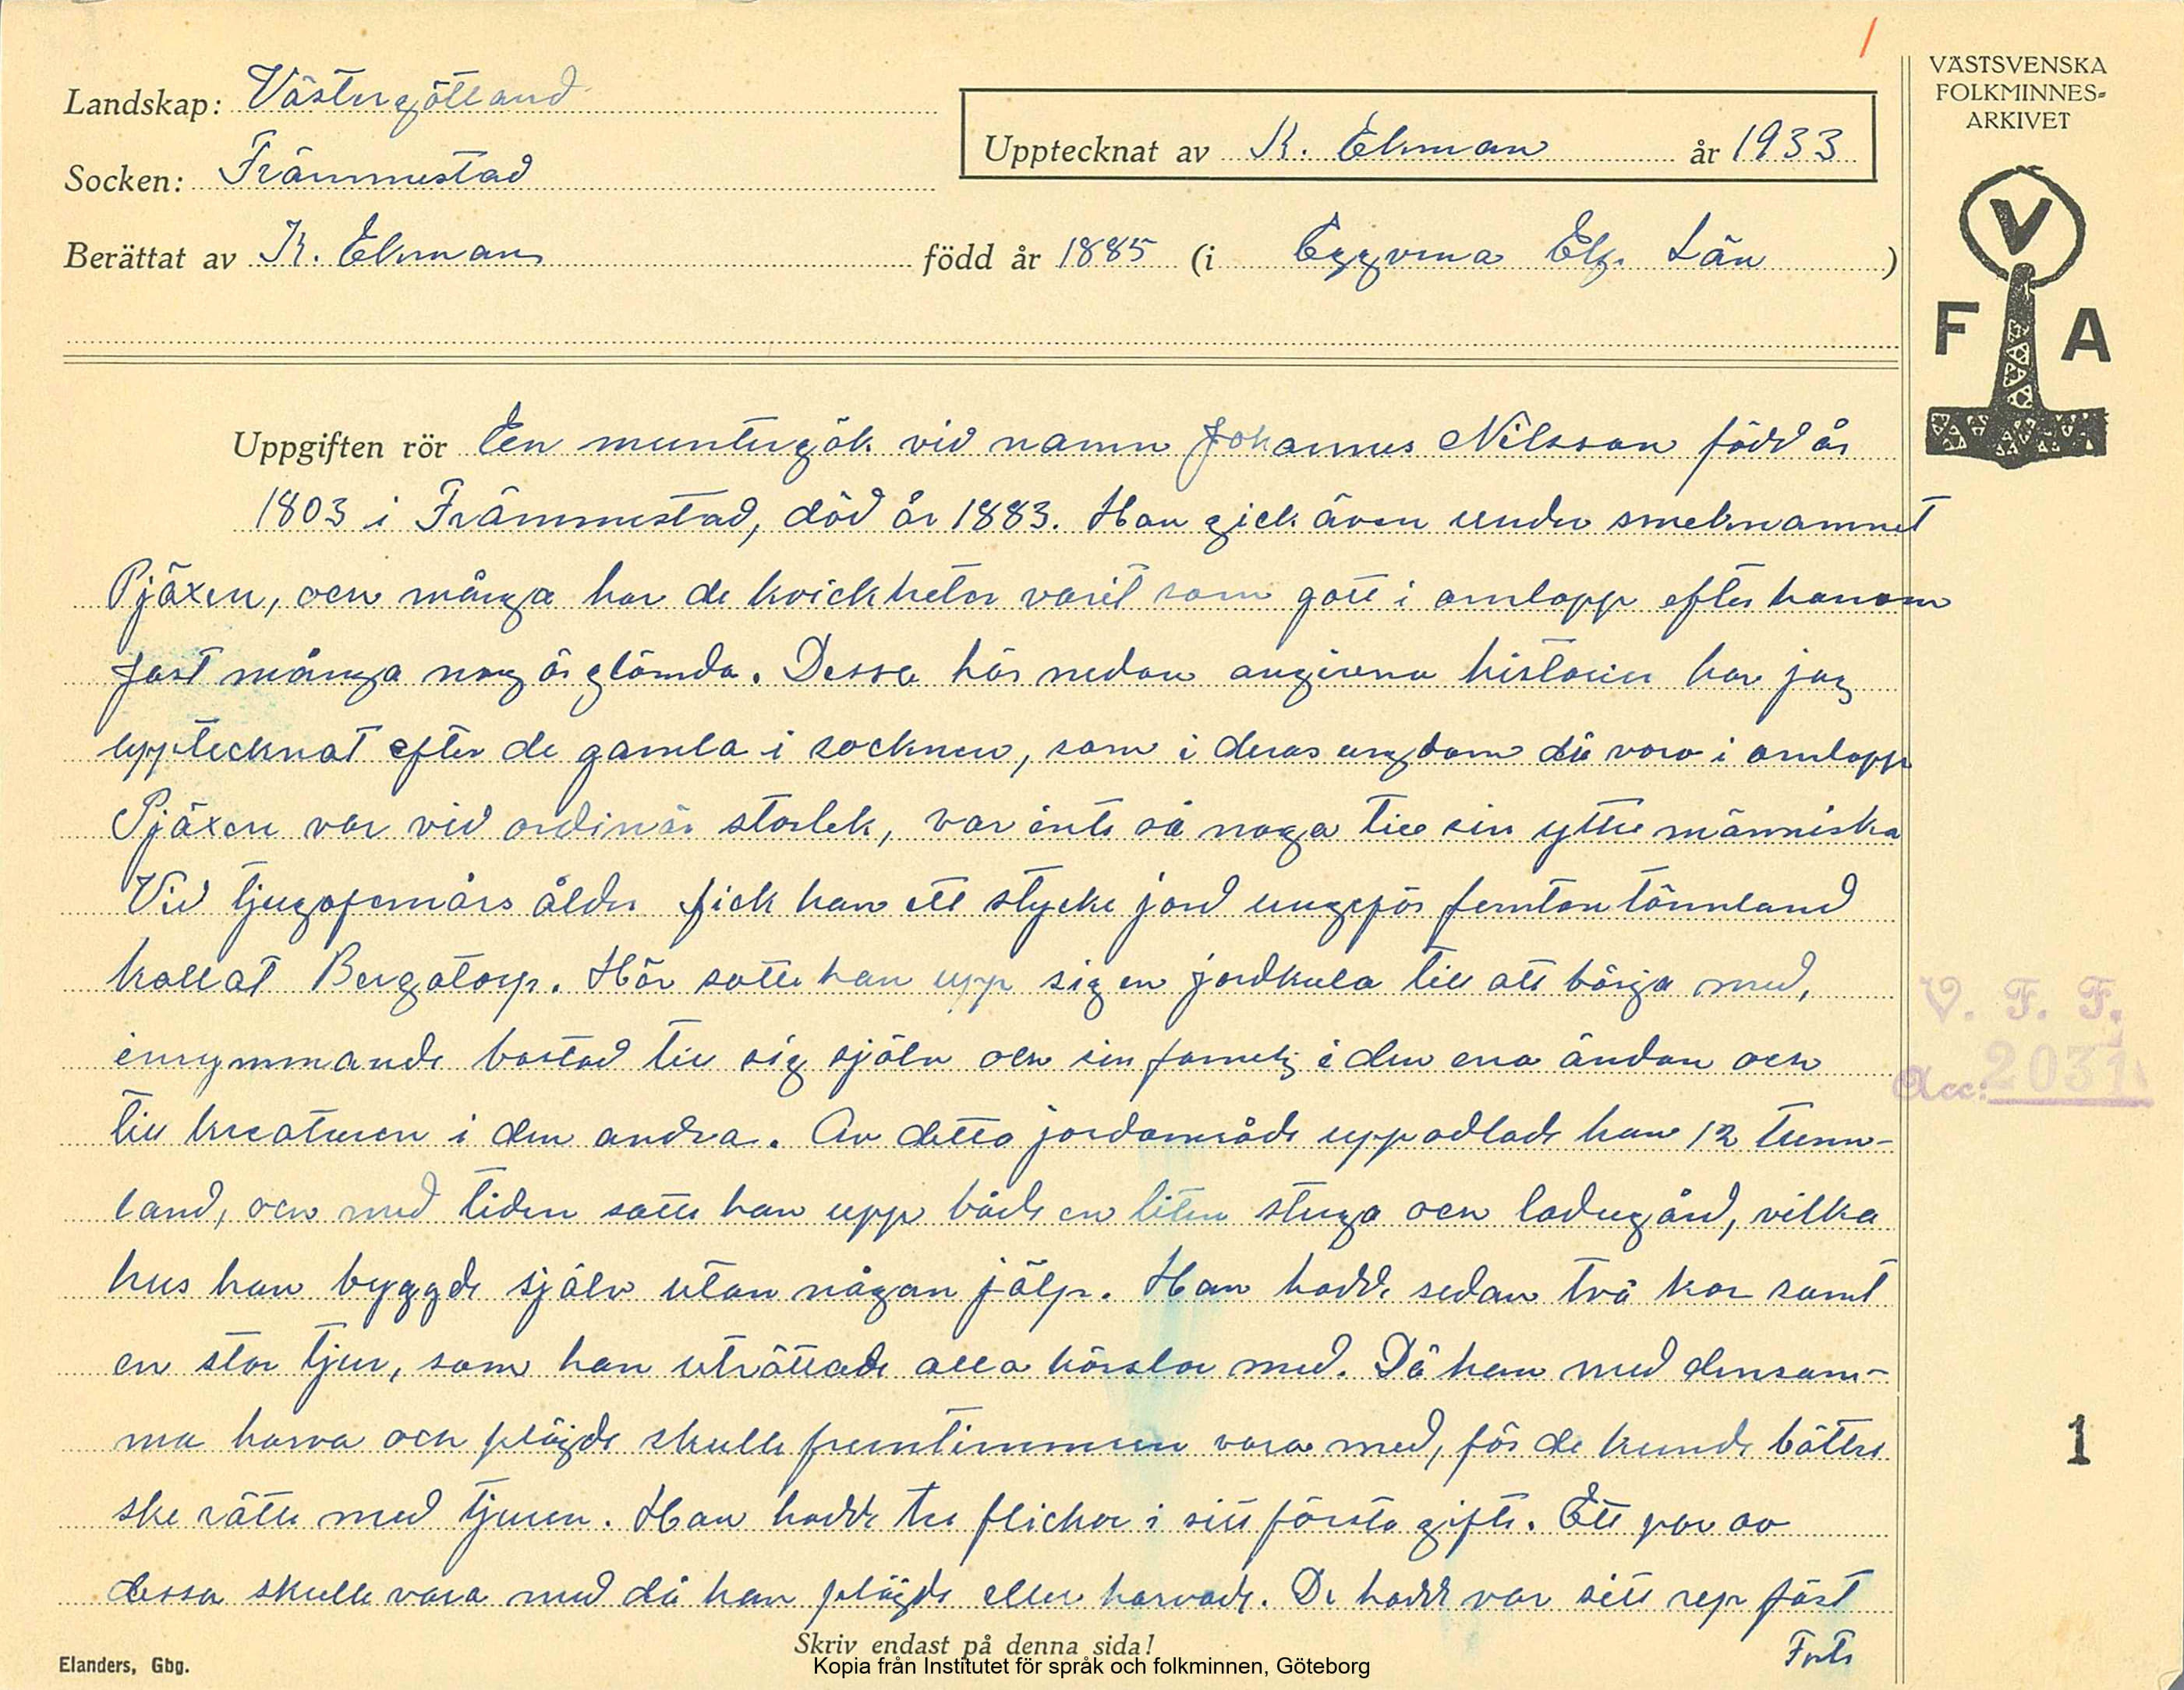 /
VÄSTSVENSKA
FOLKMINNES=
ARKIVET
V
F A
Landskap: Västergötland
Socken: Främmestad
Upptecknat av K. Ekman år 1933
Berättat av K. Ekman född år 1885 (i Eggvena Elfs. Län)
Uppgiften rör En muntergök vid namn Johannes Nilsson född år
1803 i Främmestad, död år 1883. Han gick även under smeknamnet
Pjäxen, och många har de kvickheter varit som gått i omlopp efter honom
fast många nog är glömda. Dessa här nedan angivna historier har jag
upptecknat efter de gamla i socknen, som i deras ungdom då voro i omlopp
Pjäxen var vid ordinär storlek, var inte så noga till sin yttre människa
Vid tjugofemårs ålder fick han ett stycke jord ungefär femton tönnland
kallat Bergatorp. Här satte han upp sig en jordkula till att börja med,
inrymmande bostad till sig själv och sin familj i den ena ändan och
till kreaturen i den andra. Av detta jordområde uppodlade han 12 tunn-
land, och med tiden satte han upp både en liten stuga och ladugård, vilka
hus han byggde själv utan någon jälp. Han hadde sedan två kor samt
en stor tjur, som han uträttade alla körslor med. Då han med densam-
ma harva och plöjde skulle fruntimmren vara med, för de kunde bättre
ske rätte med tjuren. Han hadde tre flickor i sitt första gifte. Ett par av
dessa skulle vara med då han plöjde eller harvade. De hadde var sitt rep fäst
Forts
V. F. F.
Acc: 2031
1
Skriv endast på denna sida!
Elanders, Gbg.
Kopia från Institutet för språk och folkminnen, Göteborg